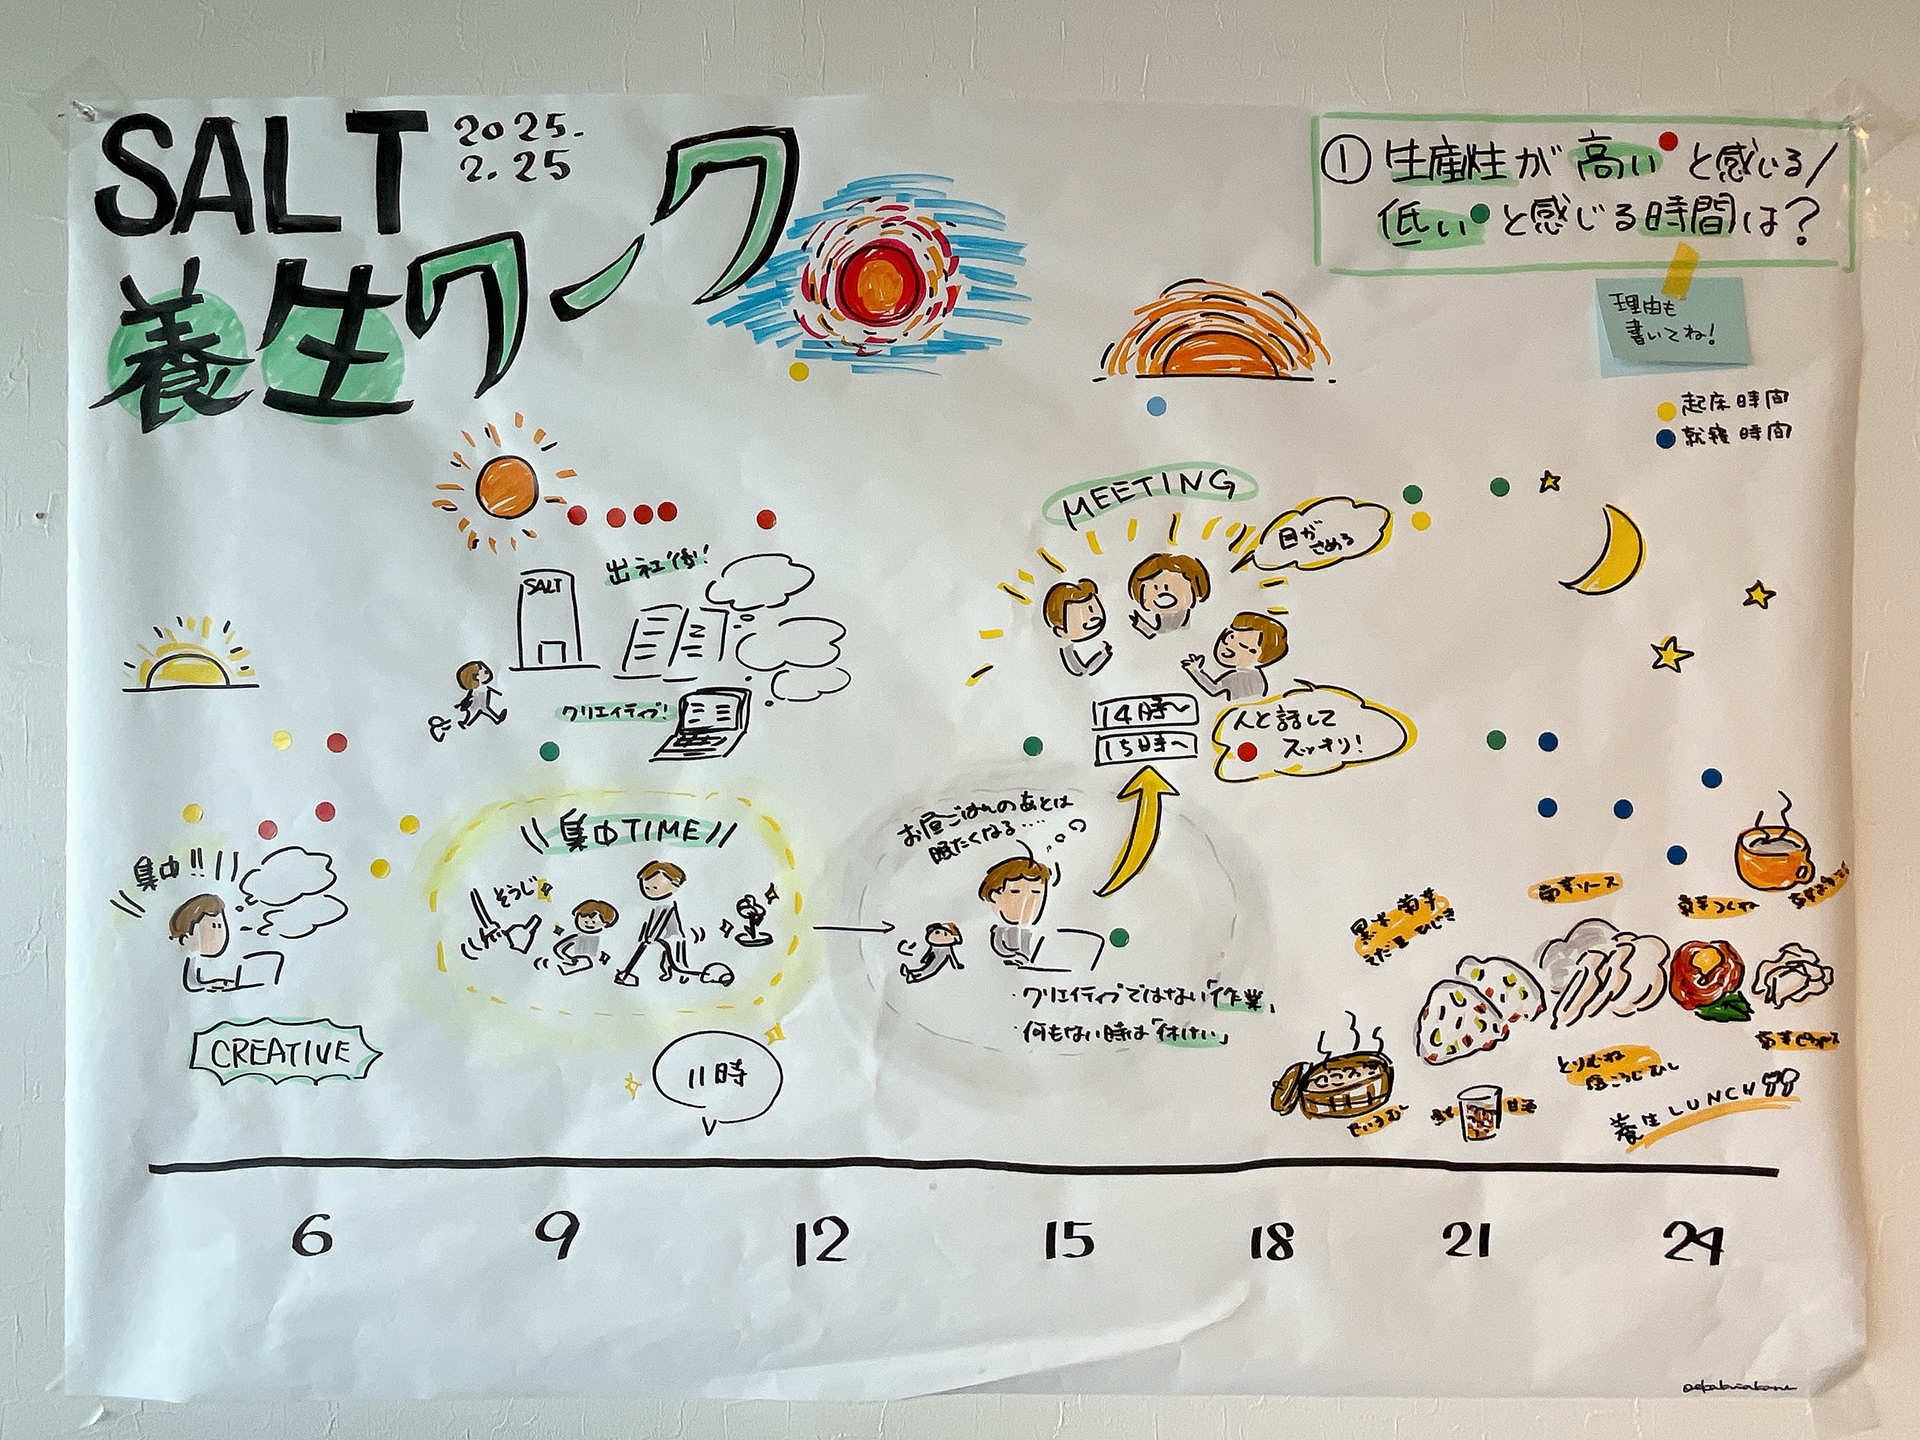 SALT
2025.
2.25
養生ワーク
① 生産性が高いと感じる/
低いと感じる時間は?
理由も
書いてね!
起床時間
就寝時間
SALT
出社後!
クリエイティブ!
MEETING
目が
さめる
14時〜
15時〜
人と話して
スッキリ!
集中!!
CREATIVE
\\集中TIME//
そうじ
11時
お昼ごはんのあとは
眠たくなる……
・クリエイティブではない「作業」
・何もない時は「休けい」
黒米 菊芋
えだ豆 ひじき
菊芋ソース
菊芋つくね
せいろむし
甘酒
とりむね
塩こうじむし
養生LUNCH
6
9
12
15
18
21
24